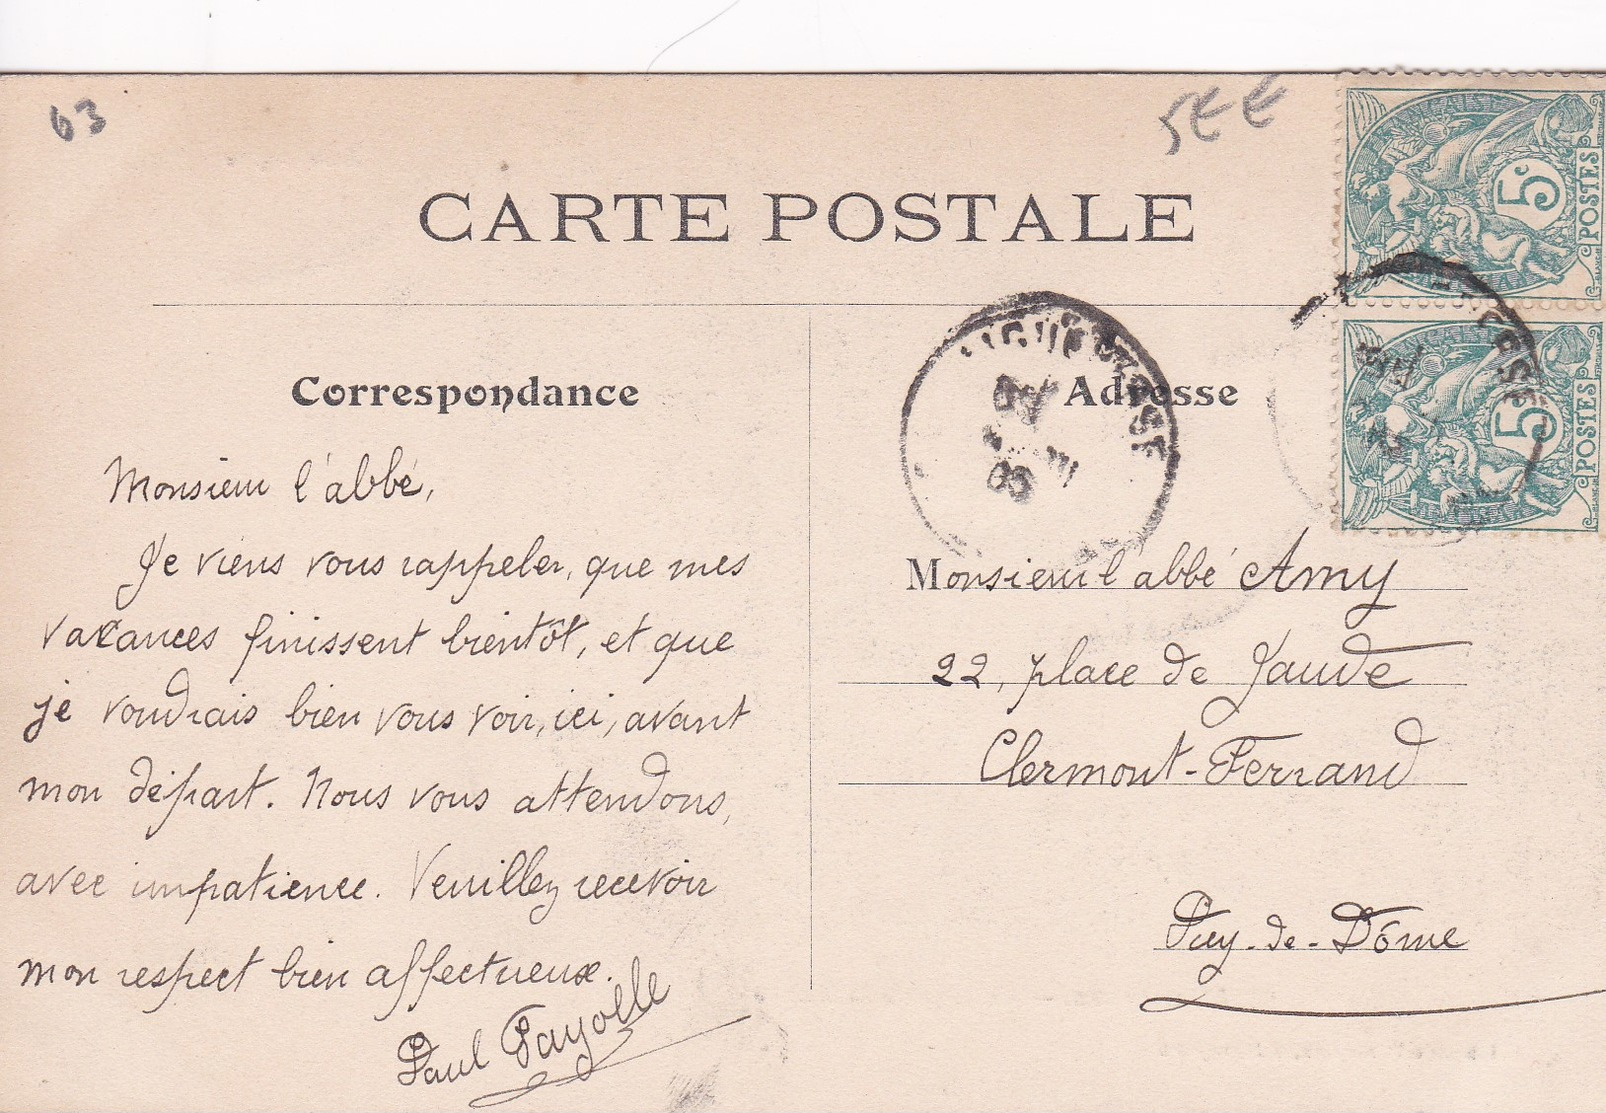 63
5€ €
CARTE POSTALE
Correspondance
Monsieur l'abbé,
Je viens vous rappeler, que mes
vacances finissent bientôt, et que
je voudrais bien vous voir, ici, avant
mon départ. Nous vous attendons,
avec impatience. Veuillez recevoir
mon respect bien affectueux.
Paul Fayolle
Adresse
Monsieur l'abbé Amy
22, place de Jaude
Clermont-Ferrand
Puy-de-Dôme
5c
POSTES
5c
POSTES